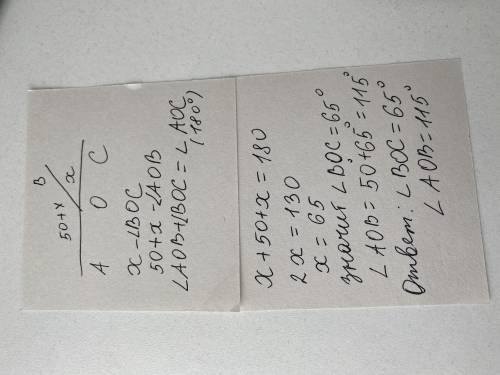 B
50+x x
A O C
x-∠BOC
50+x-∠AOB
∠AOB+∠BOC=∠AOC
(180°)
x+50+x=180
2x=130
x=65
значит ∠BOC=65°
∠AOB=50+65°=115°
Ответ: ∠BOC=65°
∠AOB=115°